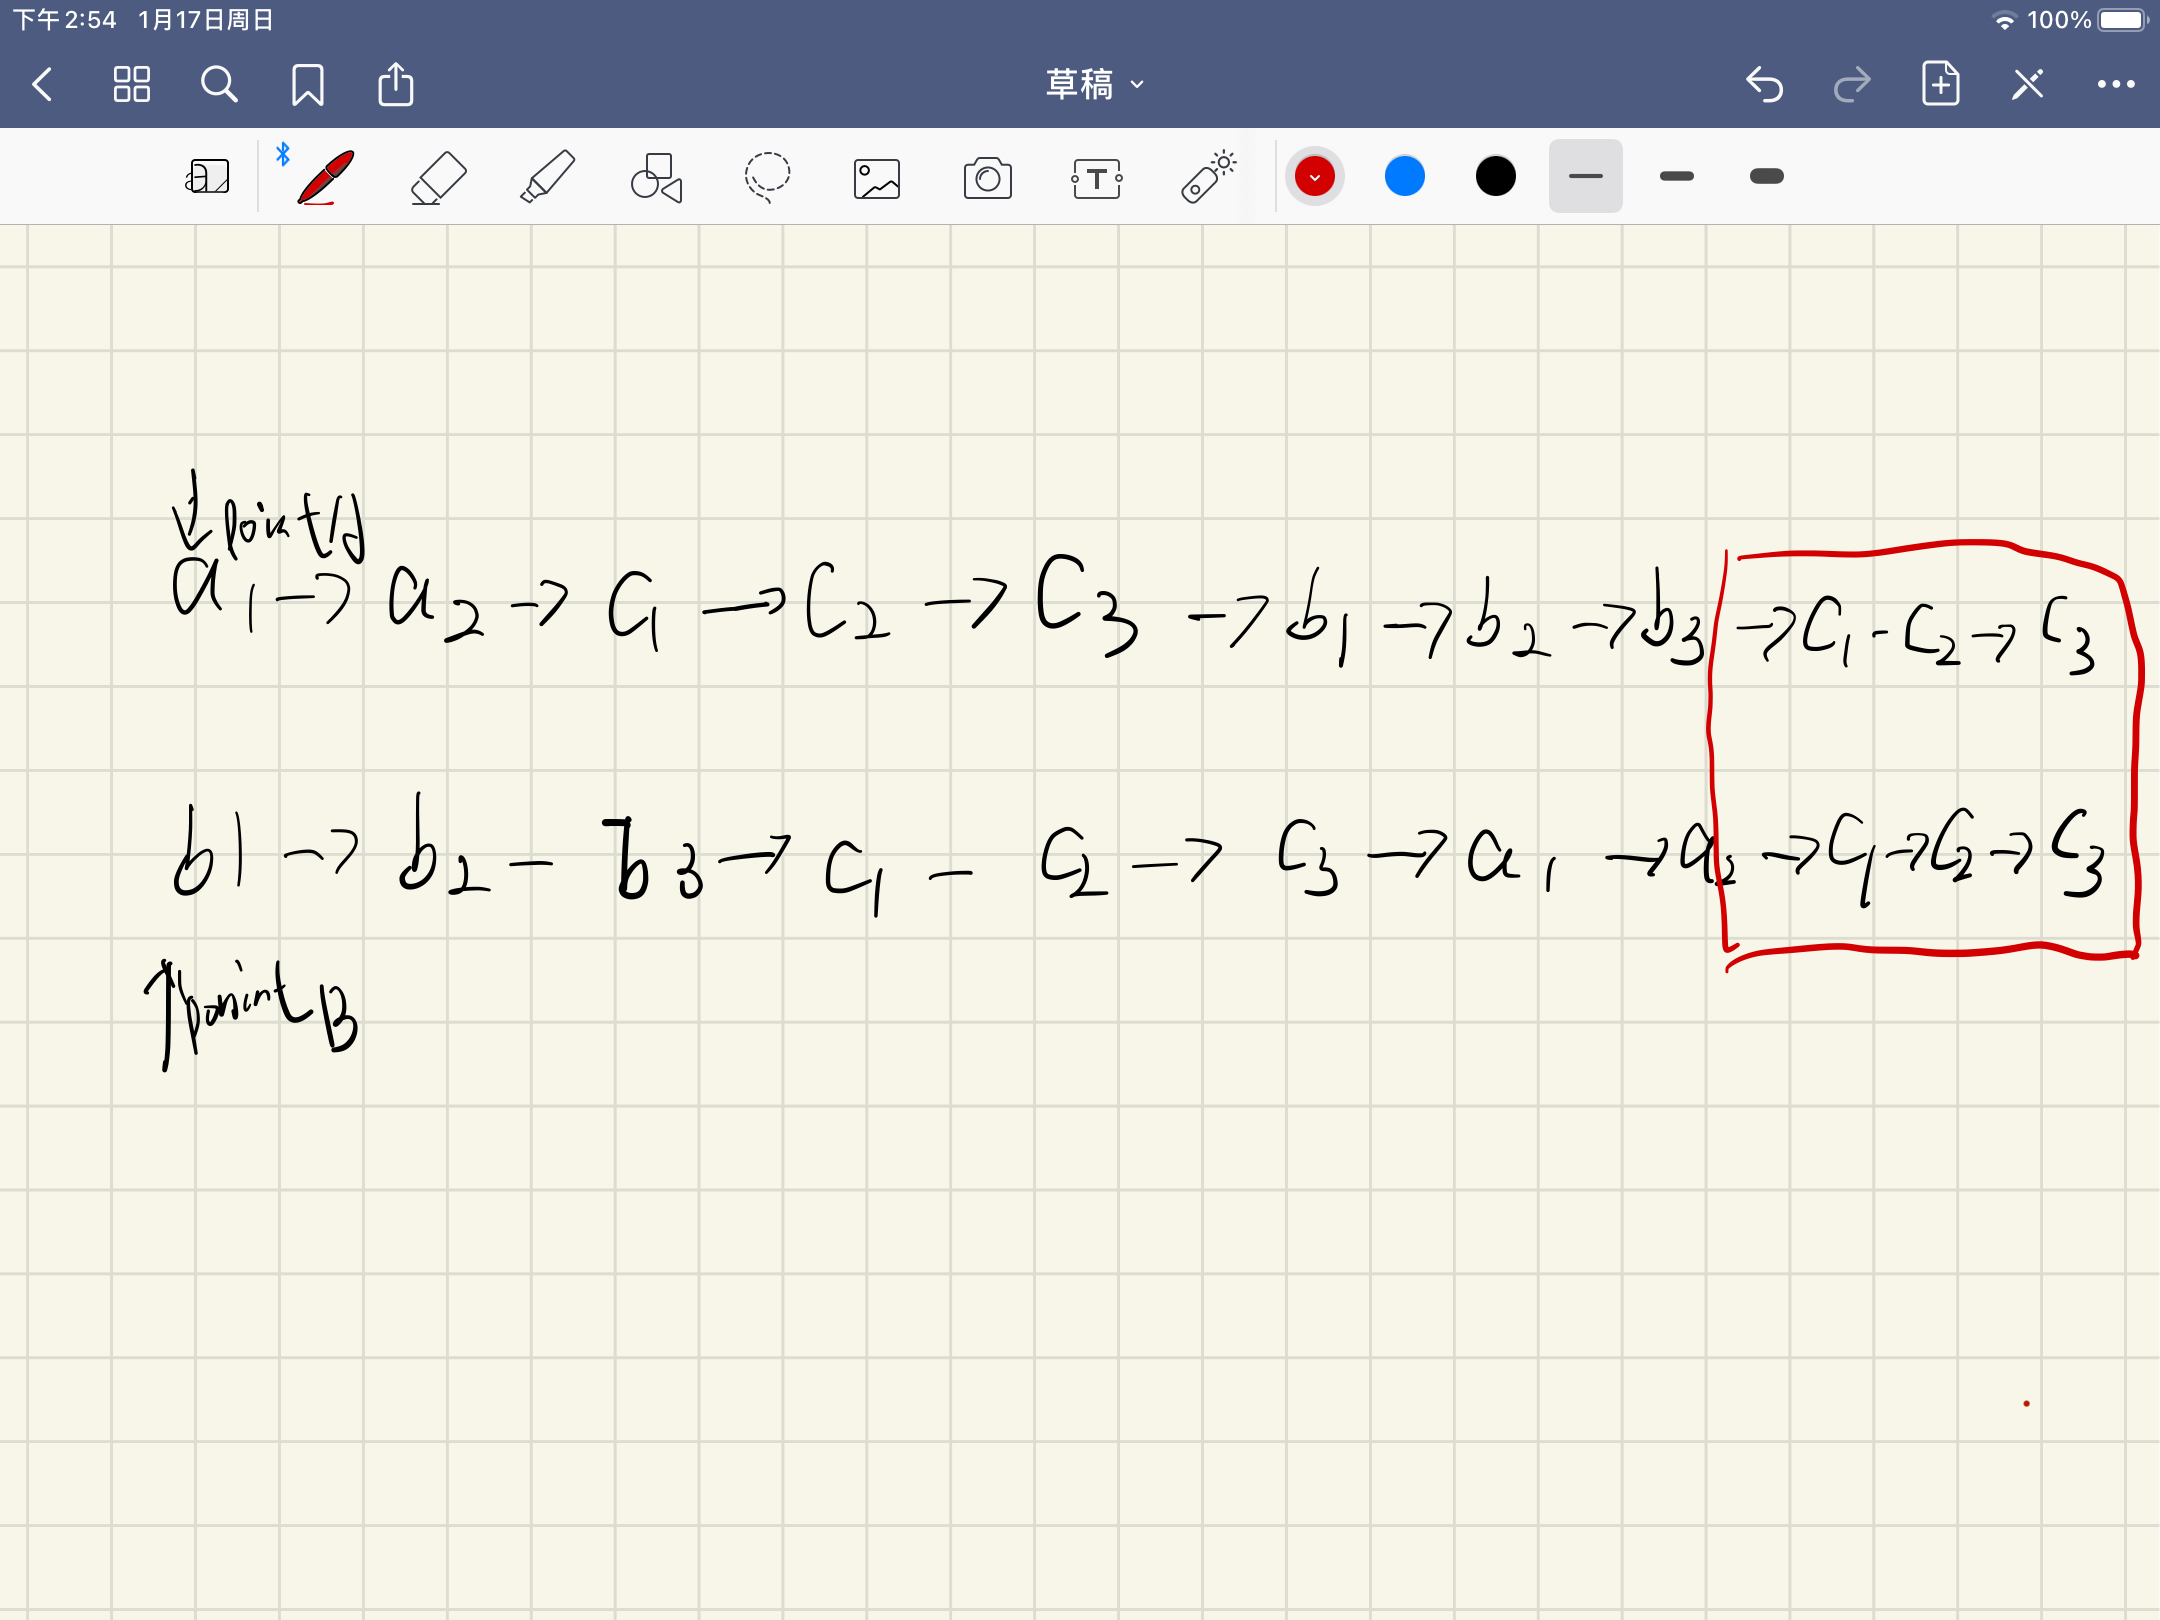 下午2:54 1月17日周日
100%
草稿
T
pointA
a1 → a2 → C1 → C2 → C3 → b1 → b2 → b3 → C1 - C2 → C3
b1 → b2 - b3 → C1 - C2 → C3 → a1 → a2 → C1 → C2 → C3
point B